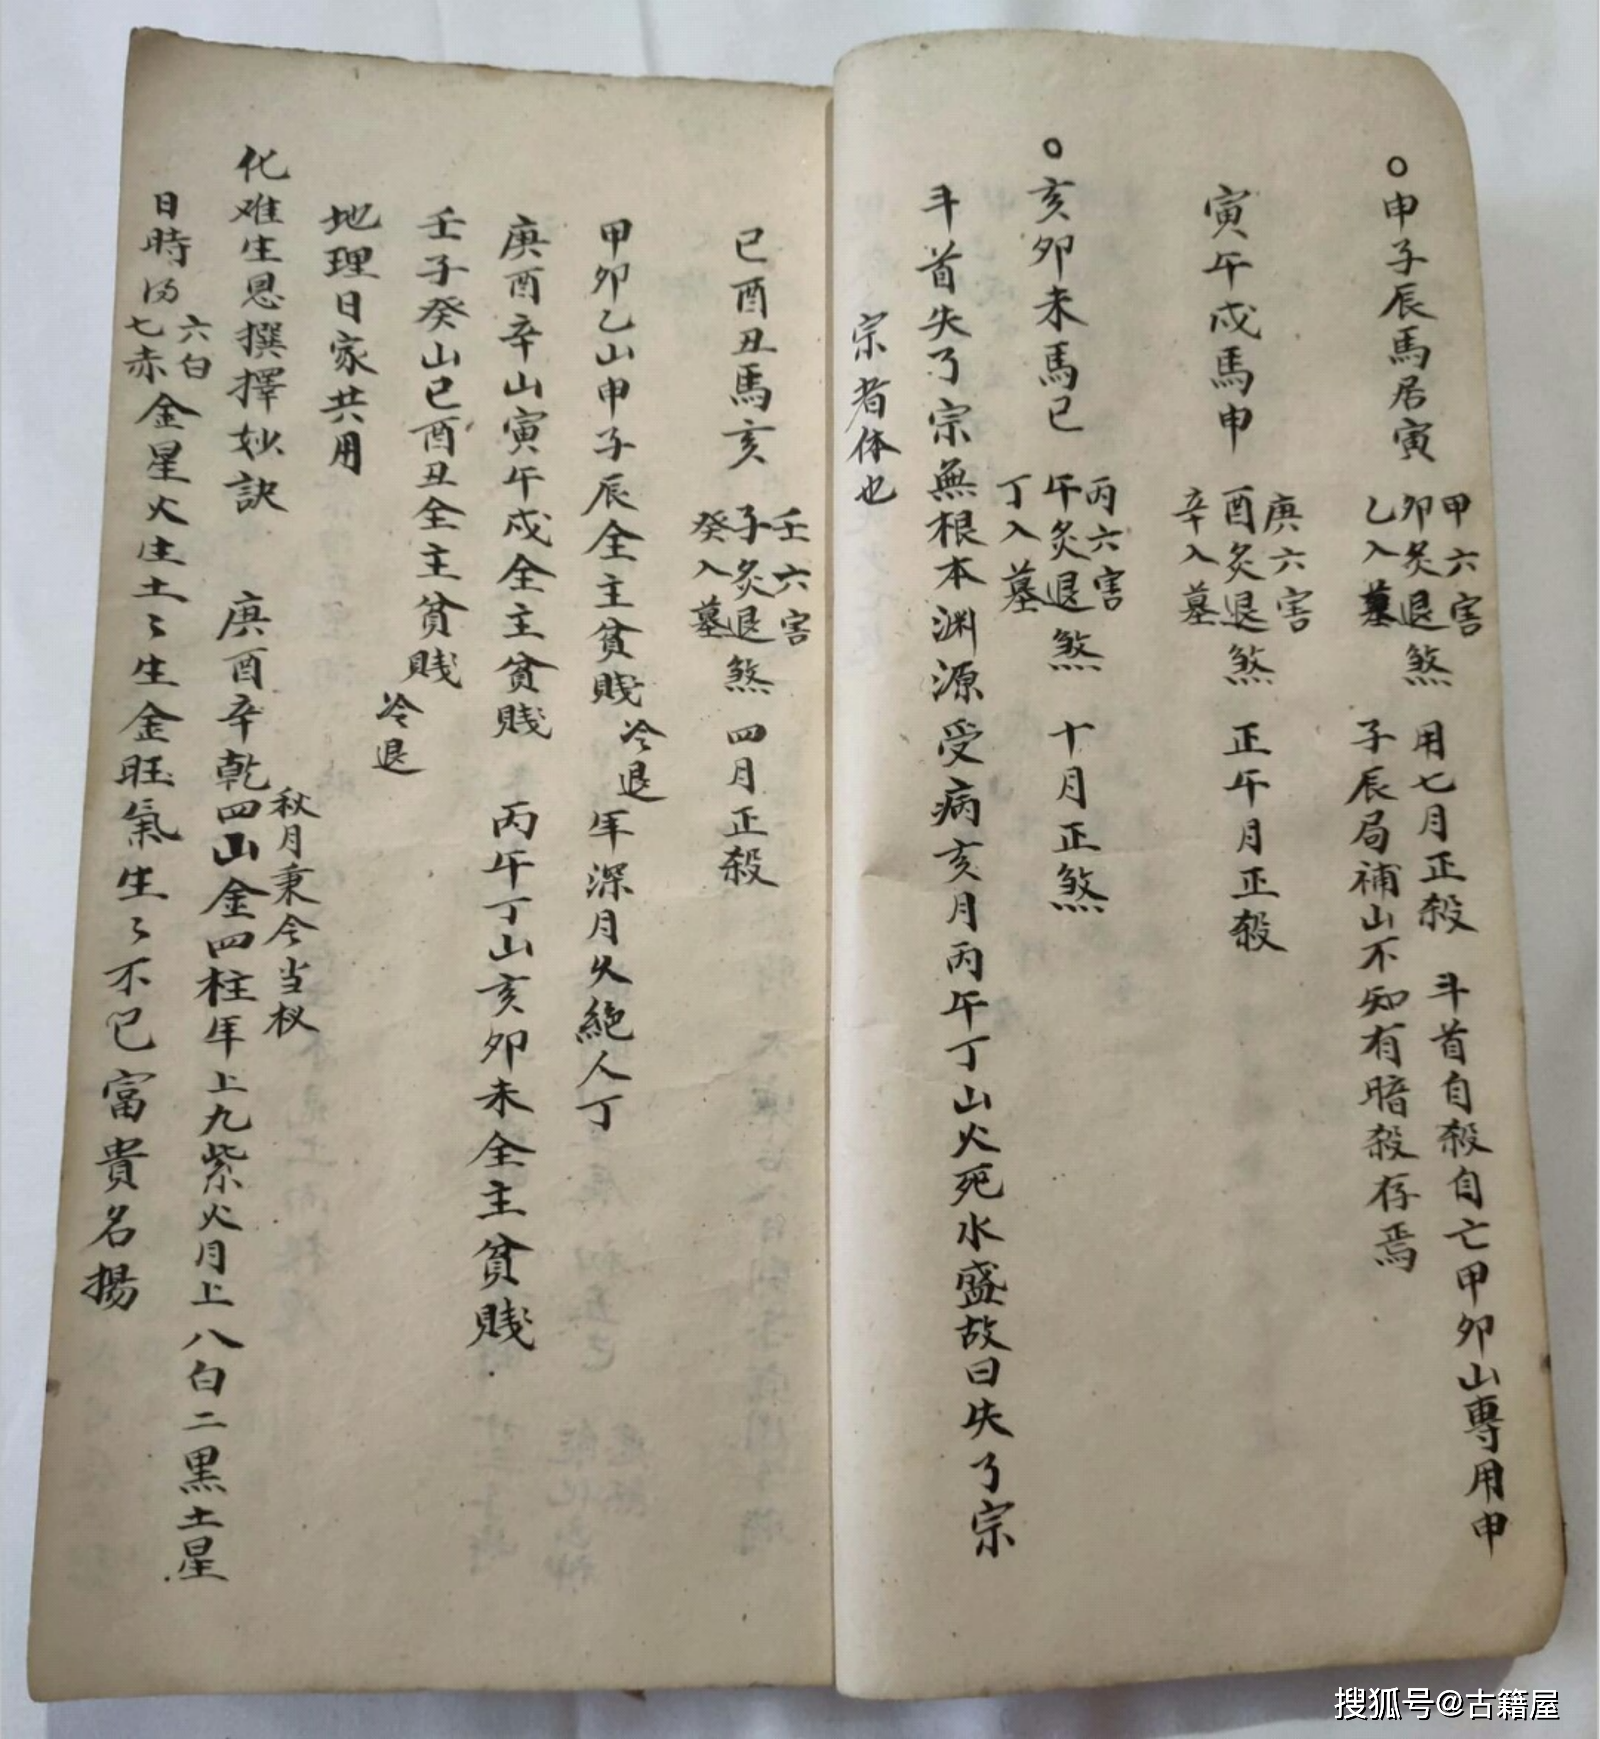 ○申子辰馬居寅
甲六害
卯炙退煞
乙入墓
用七月正殺 斗首自殺自亡甲卯山專用申
子辰局補山不知有暗殺存焉
寅午戌馬申
庚六害
酉炙退煞
辛入墓
正午月正殺
○亥卯未馬巳
丙六害
午炙退煞
丁入墓
十月正煞
斗首失了宗無根本渊源受病亥月丙午丁山火死水盛故曰失了宗
宗者体也
巳酉丑馬亥
壬六害
子炙退煞
癸入墓
四月正殺
甲卯乙山申子辰全主貧賤冷退年深月久絶人丁
庚酉辛山寅午戌全主貧賤 丙午丁山亥卯未全主貧賤
壬子癸山巳酉丑全主貧賤冷退
地理日家共用
化难生恩撰擇妙訣 庚酉辛乾四山金四柱年上九紫火月上八白二黒土星
秋月秉令当权
日時得
六白
七赤
金星火生土々生金旺氣生々不已富貴名揚
搜狐号@古籍屋